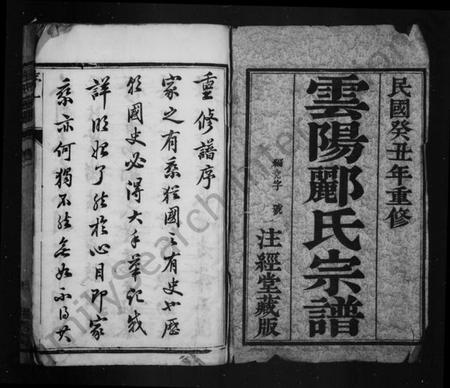 民國癸丑年重修
雲陽酈氏宗譜
字 號
注經堂藏版
重修譜序
家之有乘猶國之有史也歷
朝國史必得大手筆記載
詳明始了然於心目即家
乘亦何獨不然無如不得其